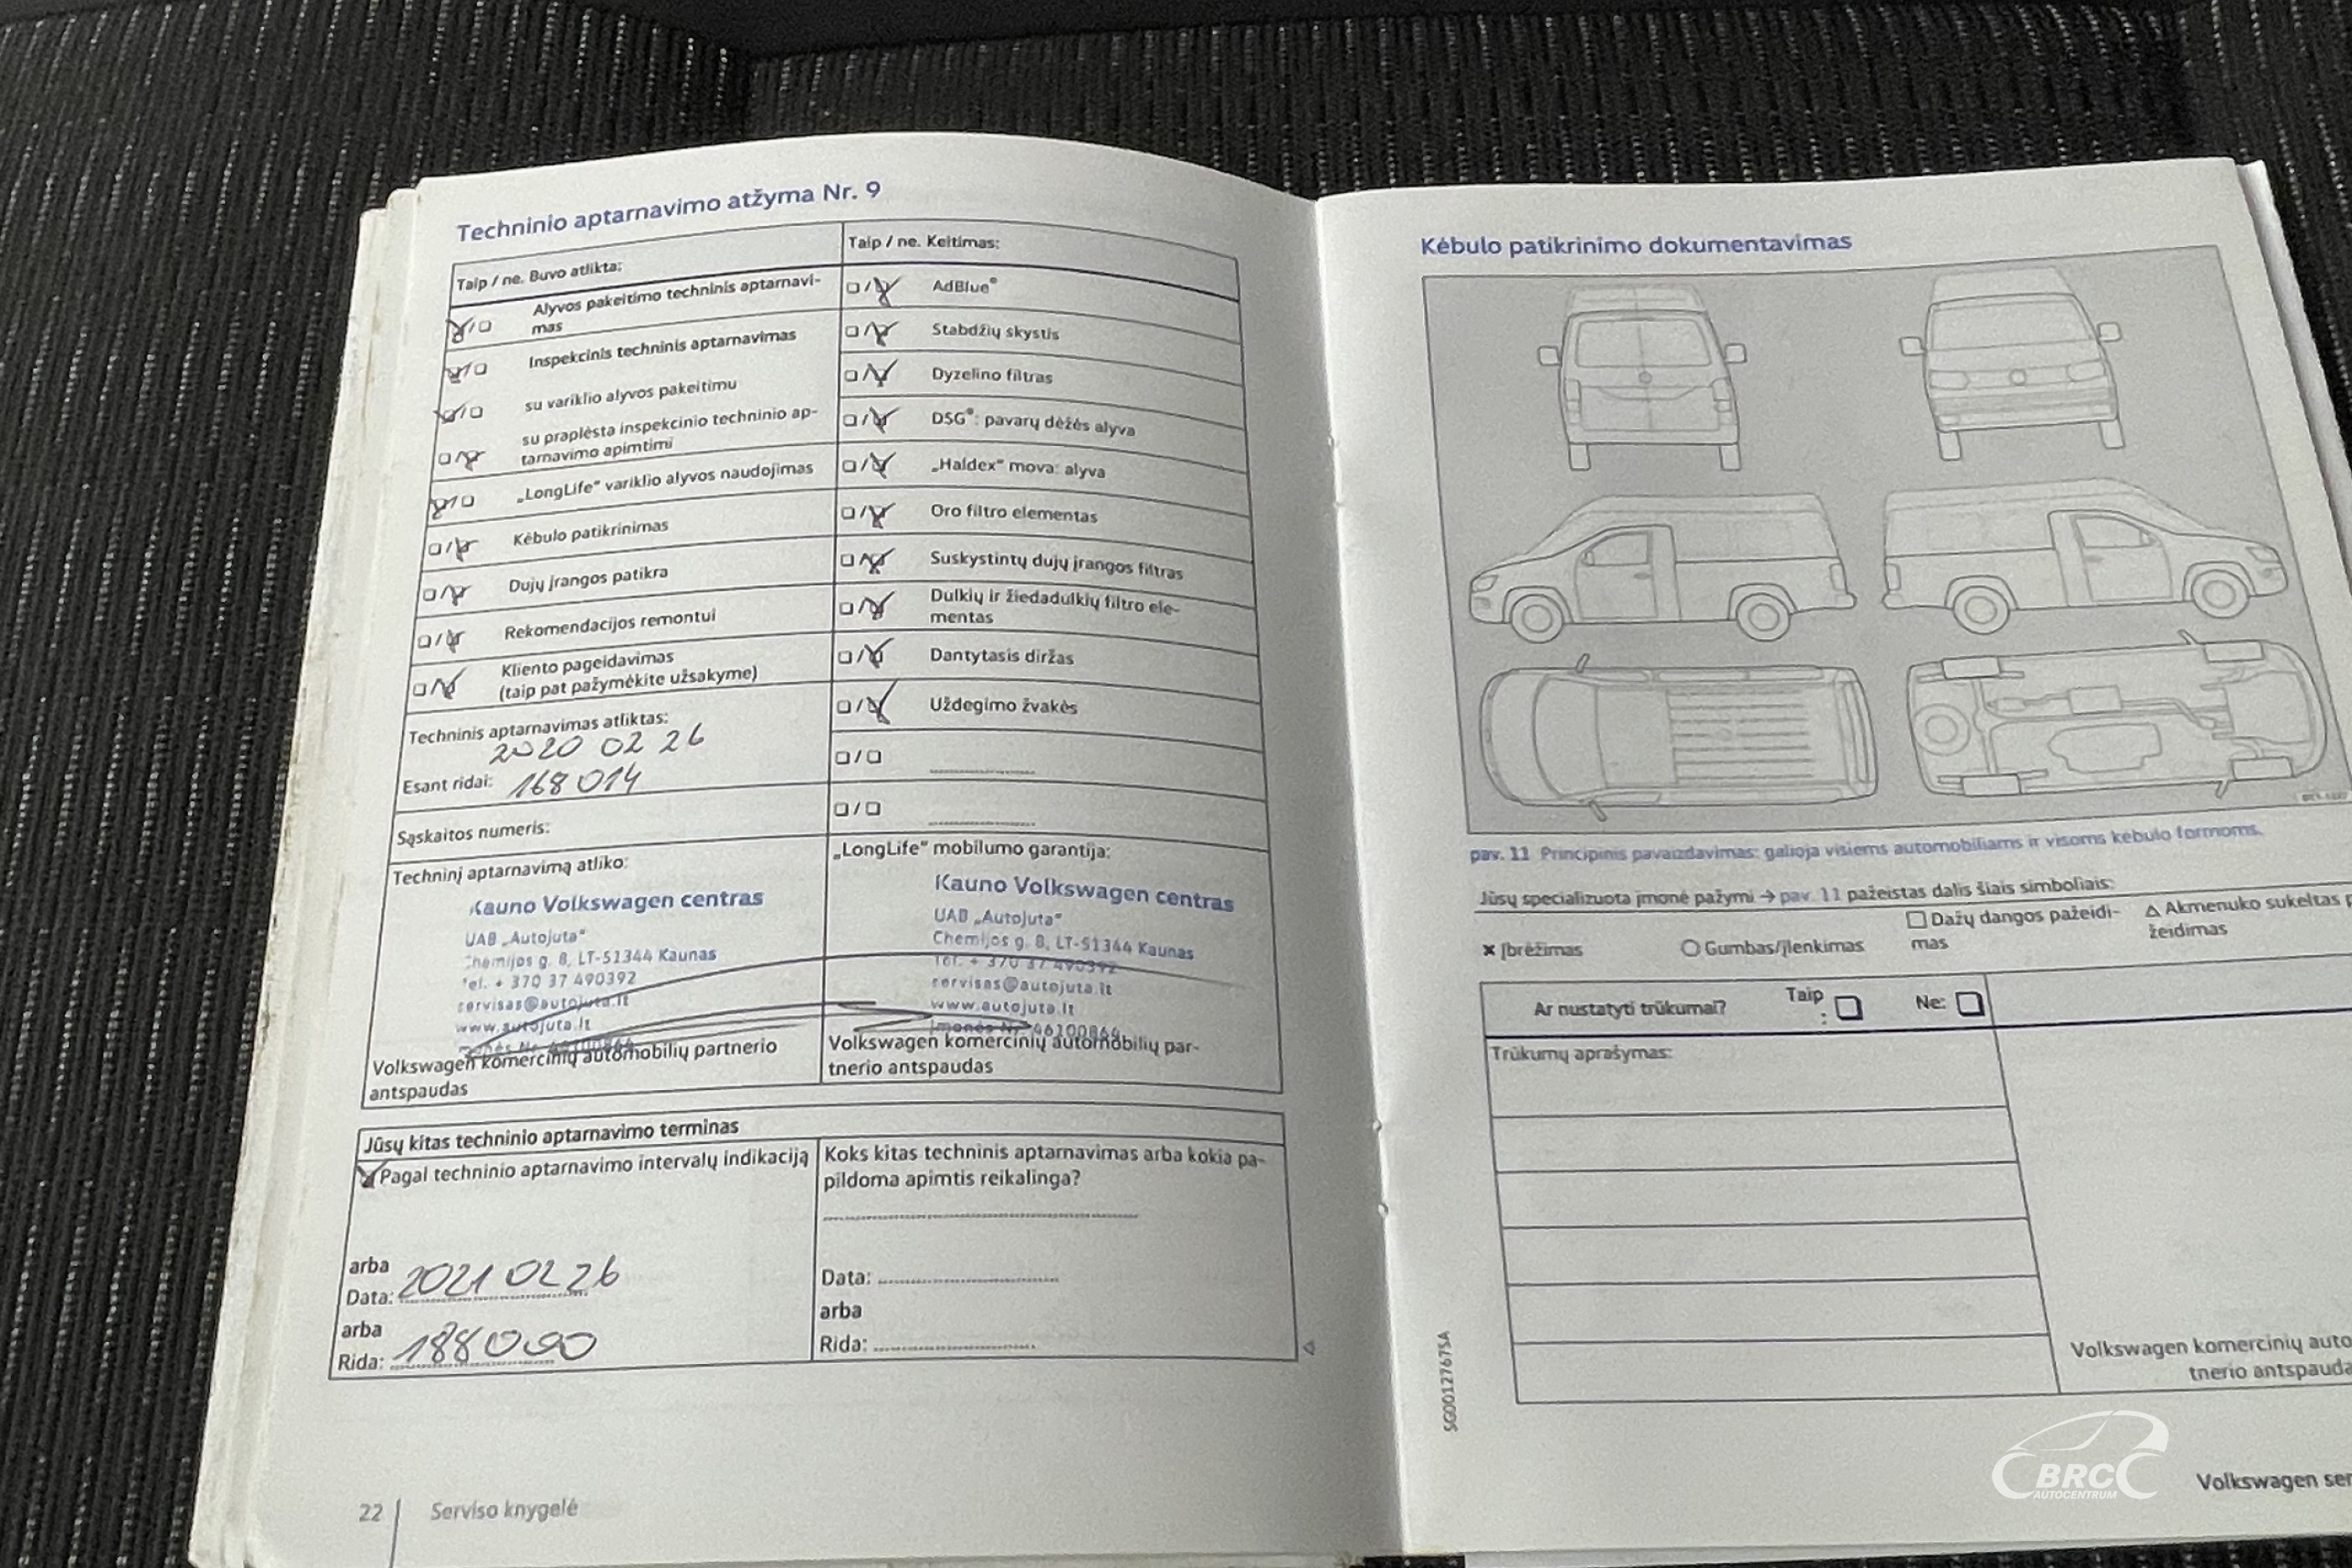 Techninio aptarnavimo atžyma Nr. 9
Taip / ne. Buvo atlikta:
Alyvos pakeitimo techninis aptarnavi-
mas
Inspekcinis techninis aptarnavimas
su variklio alyvos pakeitimu
su praplėsta inspekcinio techninio ap-
tarnavimo apimtimi
„LongLife“ variklio alyvos naudojimas
Kėbulo patikrinimas
Dujų įrangos patikra
Rekomendacijos remontui
Kliento pageidavimas
(taip pat pažymėkite užsakyme)
Techninis aptarnavimas atliktas:
2020 02 26
Esant ridai: 168 014
Sąskaitos numeris:
Techninį aptarnavimą atliko:
Kauno Volkswagen centras
UAB „Autojuta“
Chemijos g. 8, LT-51344 Kaunas
Tel. + 370 37 490392
servisas@autojuta.lt
www.autojuta.lt
Volkswagen komercinių automobilių partnerio
antspaudas
Taip / ne. Keitimas:
AdBlue®
Stabdžių skystis
Dyzelino filtras
DSG®: pavarų dėžės alyva
„Haldex“ mova: alyva
Oro filtro elementas
Suskystintų dujų įrangos filtras
Dulkių ir žiedadulkių filtro ele-
mentas
Dantytasis diržas
Uždegimo žvakės
„LongLife“ mobilumo garantija:
Kauno Volkswagen centras
UAB „Autojuta“
Chemijos g. 8, LT-51344 Kaunas
Tel. + 370 37 490392
servisas@autojuta.lt
www.autojuta.lt
Įmonės Nr. 46100864
Volkswagen komercinių automobilių par-
tnerio antspaudas
Jūsų kitas techninio aptarnavimo terminas
Pagal techninio aptarnavimo intervalų indikaciją
arba
Data: 2021 02 26
arba
Rida: 188000
Koks kitas techninis aptarnavimas arba kokia pa-
pildoma apimtis reikalinga?
Data:
arba
Rida:
22 Serviso knygelė
Kėbulo patikrinimo dokumentavimas
pav. 11 Principinis pavaizdavimas: galioja visiems automobiliams ir visoms kėbulo formoms.
Jūsų specializuota įmonė pažymi → pav. 11 pažeistas dalis šiais simboliais:
× Įbrėžimas
○ Gumbas/įlenkimas
□ Dažų dangos pažeidi-
mas
△ Akmenuko sukeltas p
žeidimas
Ar nustatyti trūkumai?
Taip
:
Ne:
Trūkumų aprašymas:
Volkswagen komercinių auto
tnerio antspauda
SG0012767SA
Volkswagen ser
BRC
AUTOCENTRUM